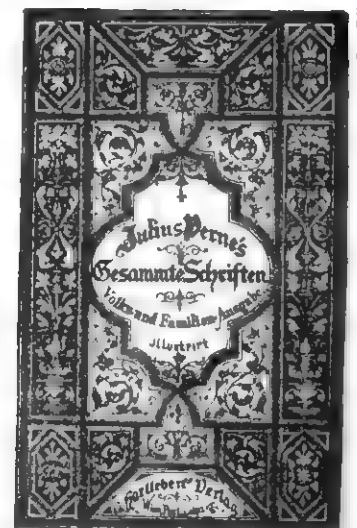 Julius Verne's
Gesammte Schriften
Volks und Familien Ausgabe
Illustrirt
Hartleben's Verlag